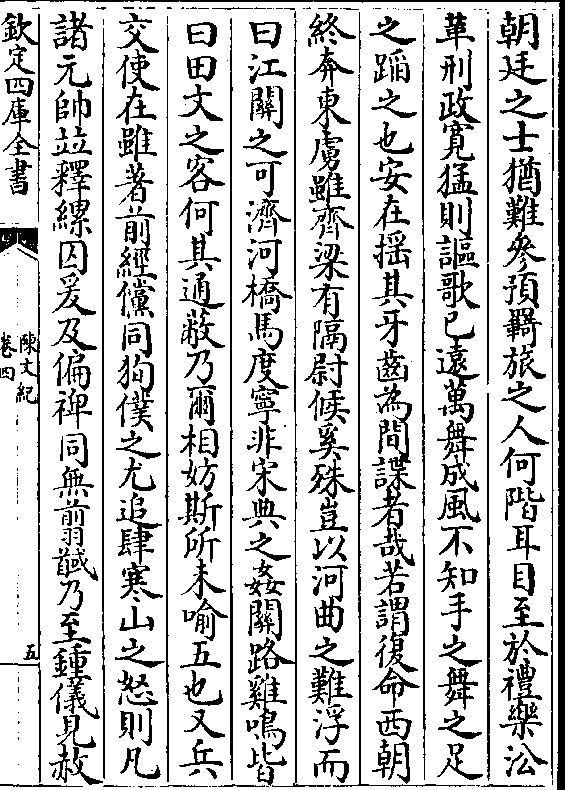 朝廷之士猶難參預羇旅之人何階耳目至於禮樂㳂
革刑政寛猛則謳歌已遠萬舞成風不知手之舞之足
之蹈之也安在揺其牙齒為間諜者哉若謂復命西朝
終奔東虜雖齊梁有隔尉候奚殊豈以河曲之難浮而
曰江關之可濟河橋馬度寧非宋典之姦關路雞鳴皆
曰田文之客何其通蔽乃爾相妨斯所未喻五也又兵
交使在雖著前經儻同狥僕之尤追肆寒山之怒則凡
諸元帥竝釋縲囚爰及偏裨同無翦馘乃至鍾儀見赦
欽定四庫全書
陳文紀
卷四
五